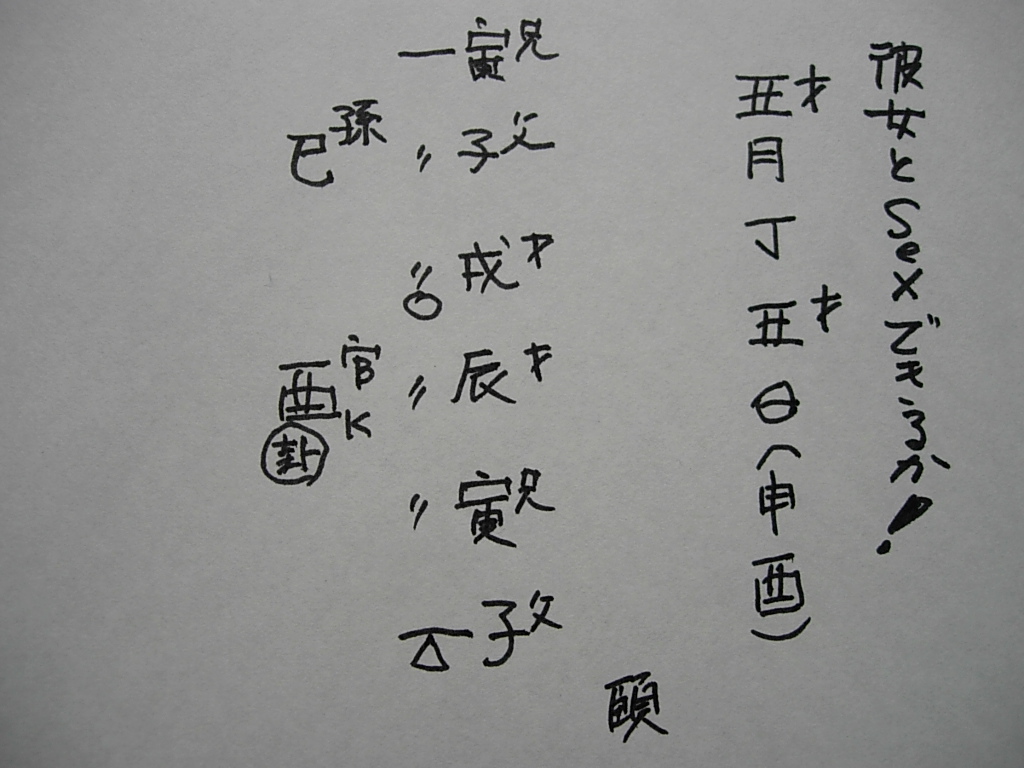 彼女とSexできるか!
丑才月丁丑才日(申酉)
一寅兄
巳孫〃子父
〃○戌才
酉官K〃辰才
卦
〃寅兄
一△子父
頤